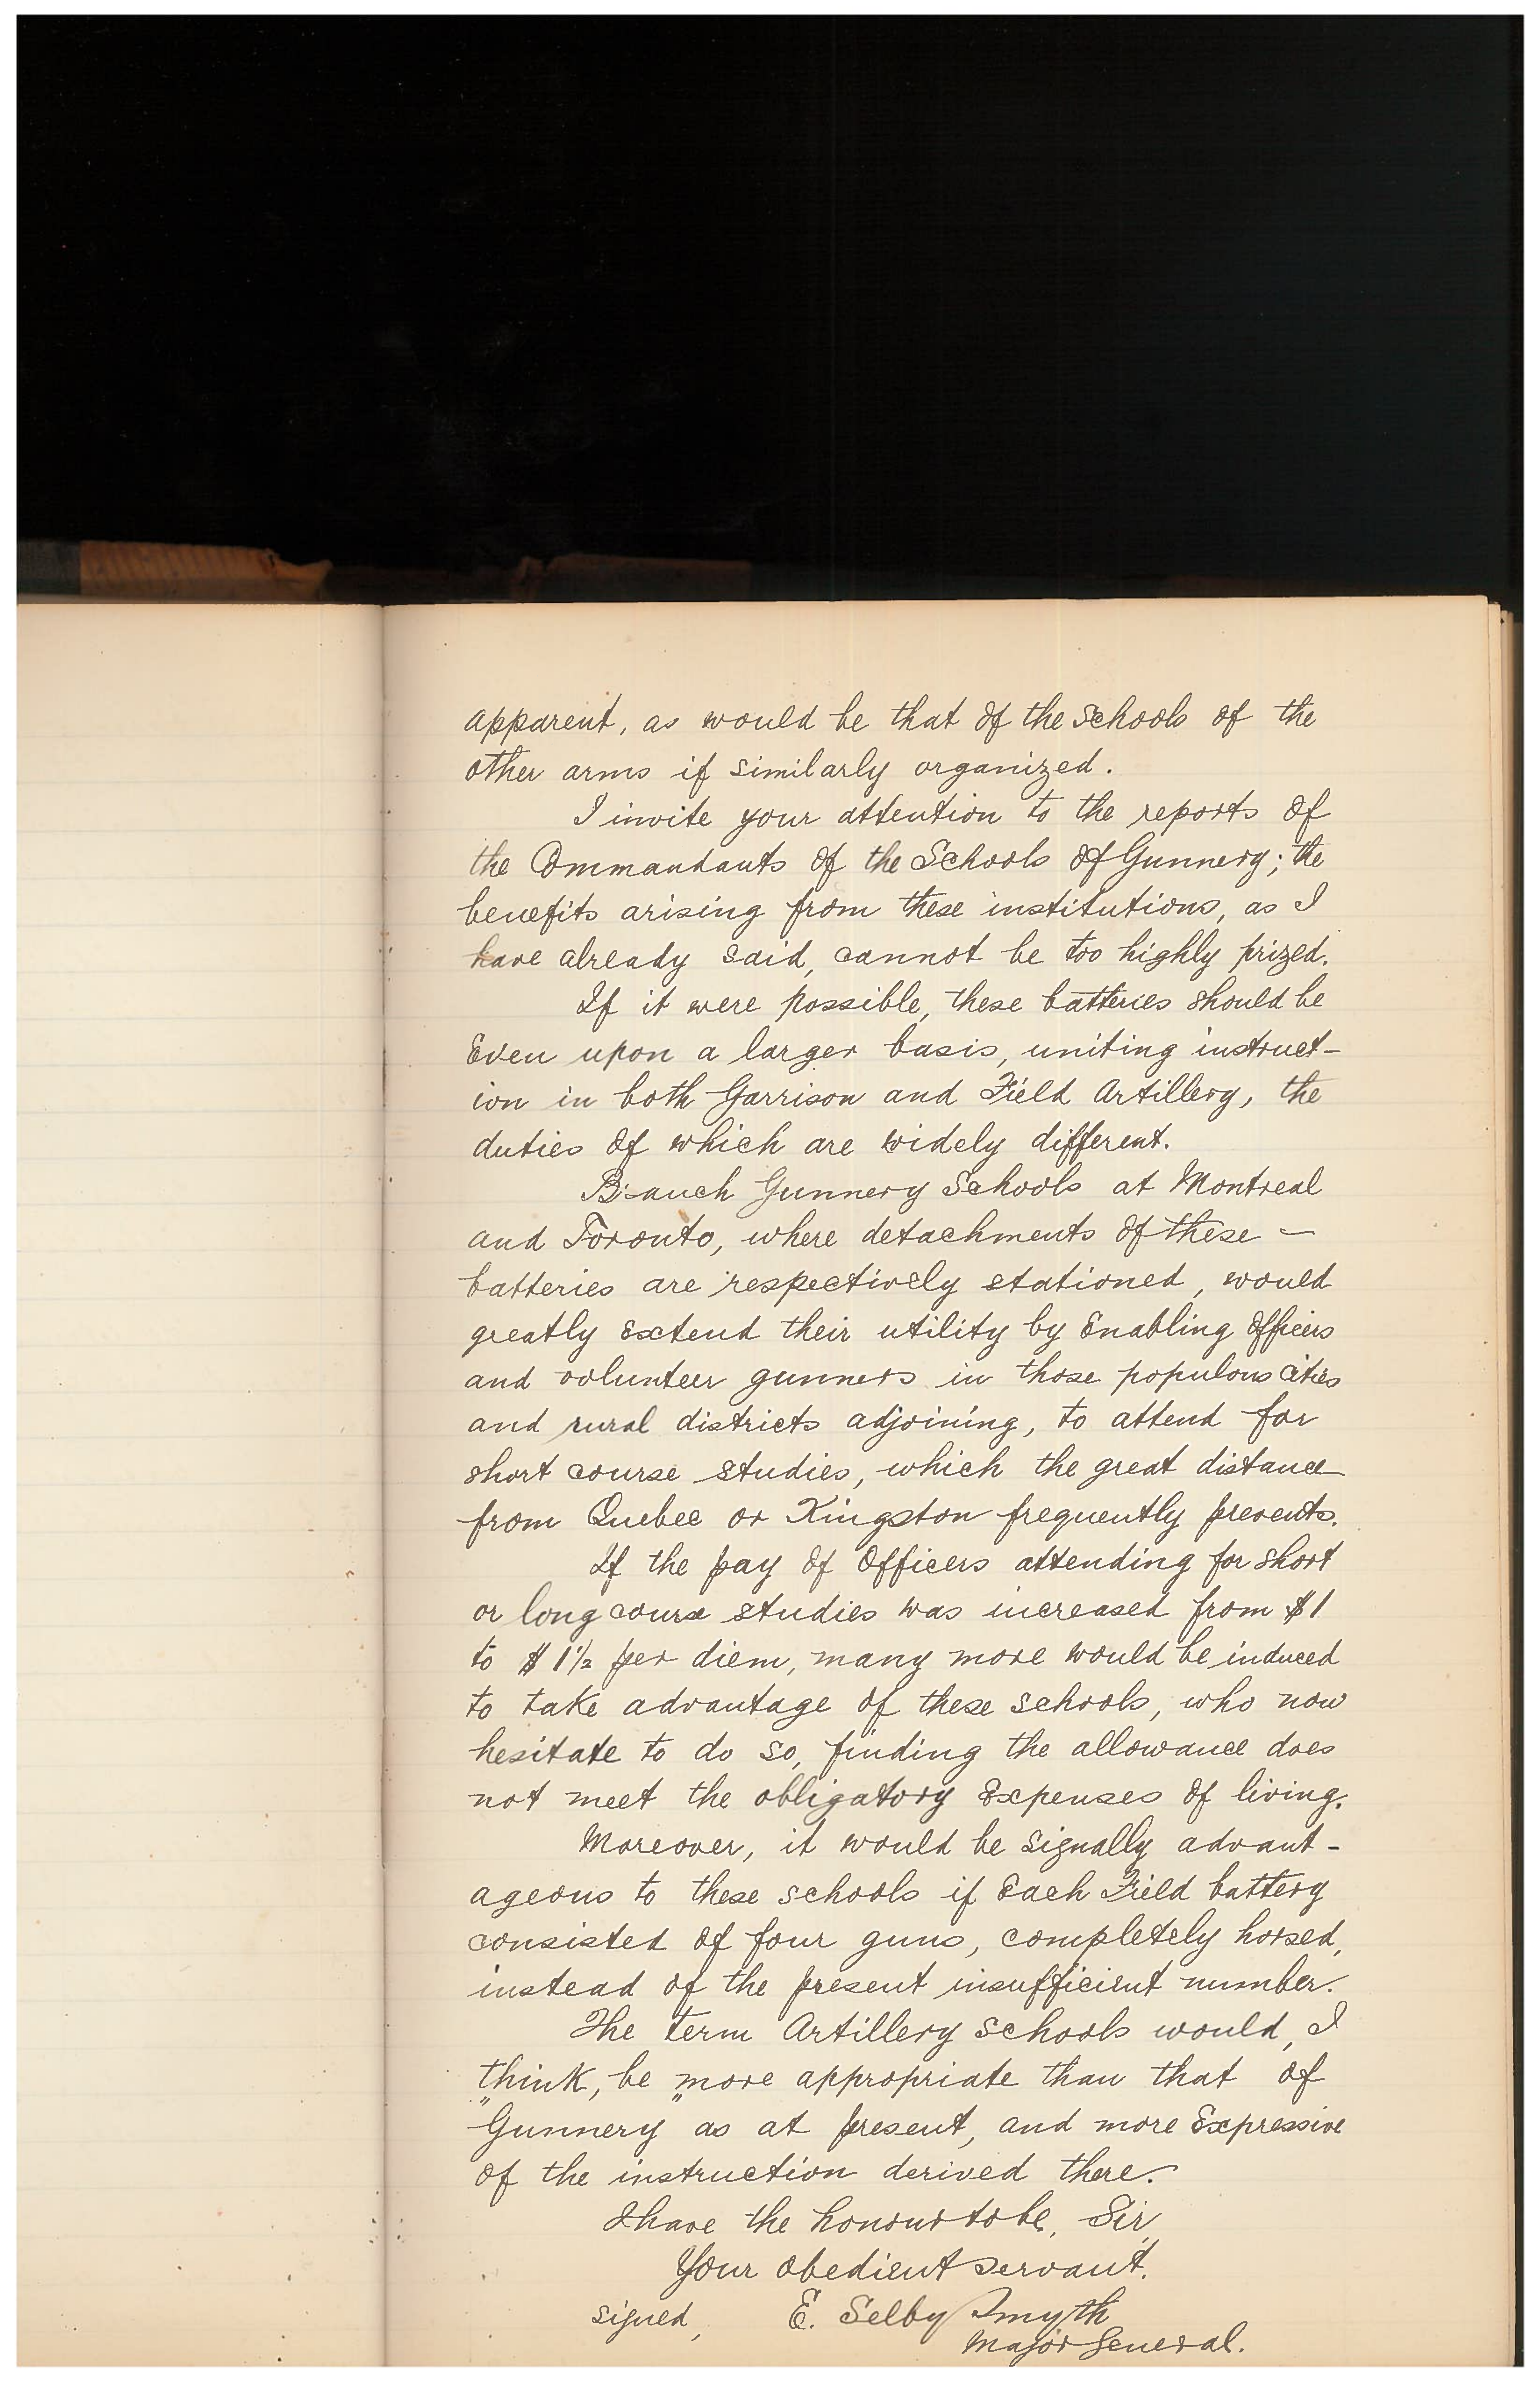 apparent, as would be that of the Schools of the
other arms if similarly organized.
I invite your attention to the reports of
the Commandants of the Schools of Gunnery; the
benefits arising from these institutions, as I
have already said, cannot be too highly prized.
If it were possible, these batteries should be
Even upon a larger basis, uniting instruct-
ion in both Garrison and Field Artillery, the
duties of which are widely different.
Branch Gunnery Schools at Montreal
and Toronto, where detachments of these -
batteries are respectively stationed, would
greatly extend their utility by Enabling Officers
and volunteer gunners in those populous cities
and rural districts adjoining, to attend for
short course studies, which the great distance
from Quebec or Kingston frequently prevents.
If the pay of Officers attending for short
or long course studies was increased from $1
to $1½ per diem, many more would be induced
to take advantage of these schools, who now
hesitate to do so, finding the allowance does
not meet the obligatory Expenses of living.
Moreover, it would be signally advant-
ageous to these schools if Each Field battery
consisted of four guns, completely horsed,
instead of the present insufficient number.
The term Artillery schools would, I
think, be more appropriate than that of
"Gunnery" as at present, and more Expressive
of the instruction derived there.
I have the honour to be, Sir,
Your obedient servant.
signed, E. Selby Smyth
Major General.